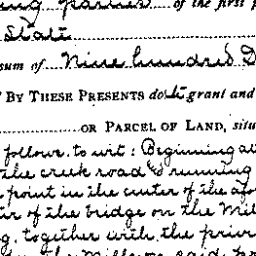 ing parties of the first p
State
sum of Nine hundred D
BY THESE PRESENTS do th grant and
OR PARCEL OF LAND, situ
follows, to wit: Beginning at
the creek road & running
point in the center of the afo
ter of the bridge on the Mil
g, together with the priv
the Mill said pr